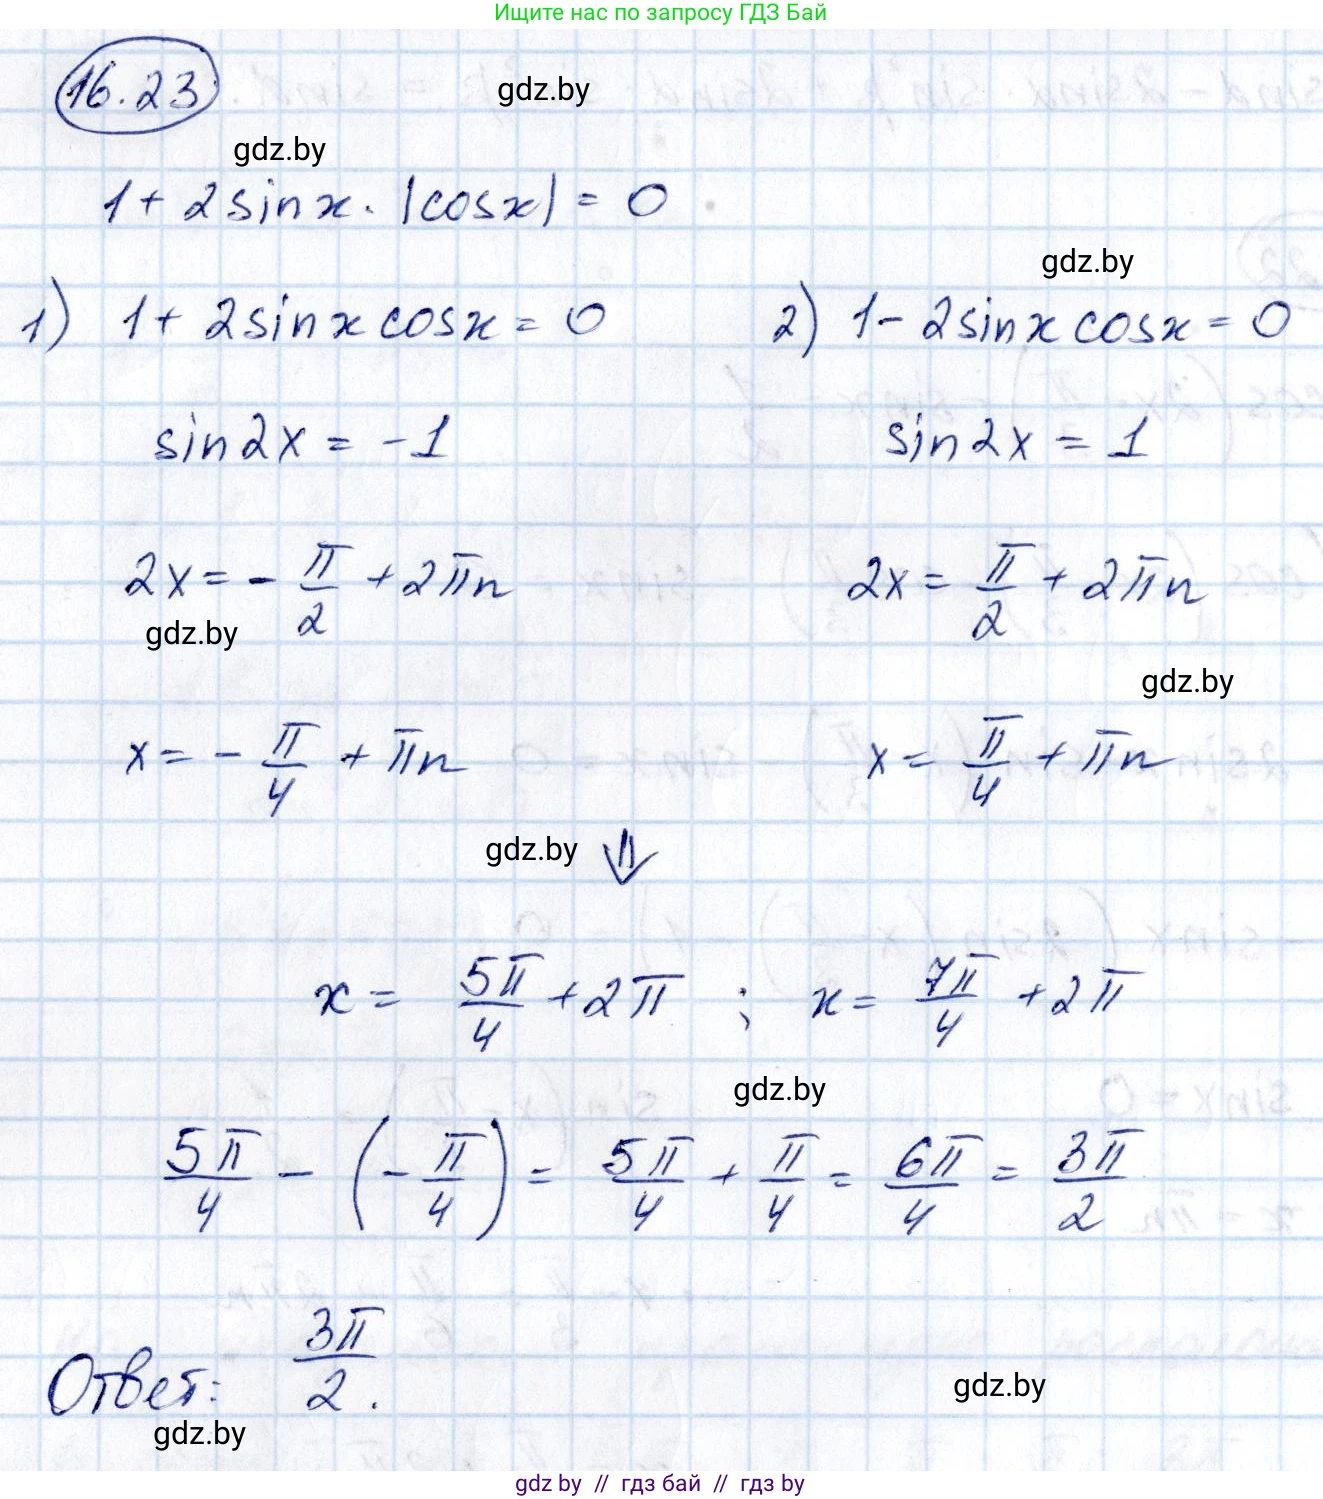 Ищите нас по запросу ГДЗ Бай
16.23
gdz.by
gdz.by
1 + 2 sin x · |cos x| = 0
gdz.by
1) 1 + 2 sin x cos x = 0
2) 1 - 2 sin x cos x = 0
sin 2x = -1
sin 2x = 1
2x = - π/2 + 2πn
2x = π/2 + 2πn
gdz.by
gdz.by
x = - π/4 + πn
x = π/4 + πn
gdz.by ⇓
x = 5π/4 + 2π ; x = 7π/4 + 2π
gdz.by
5π/4 - (- π/4) = 5π/4 + π/4 = 6π/4 = 3π/2
Ответ: 3π/2.
gdz.by
gdz.by
gdz.by // гдз бай // gdz by